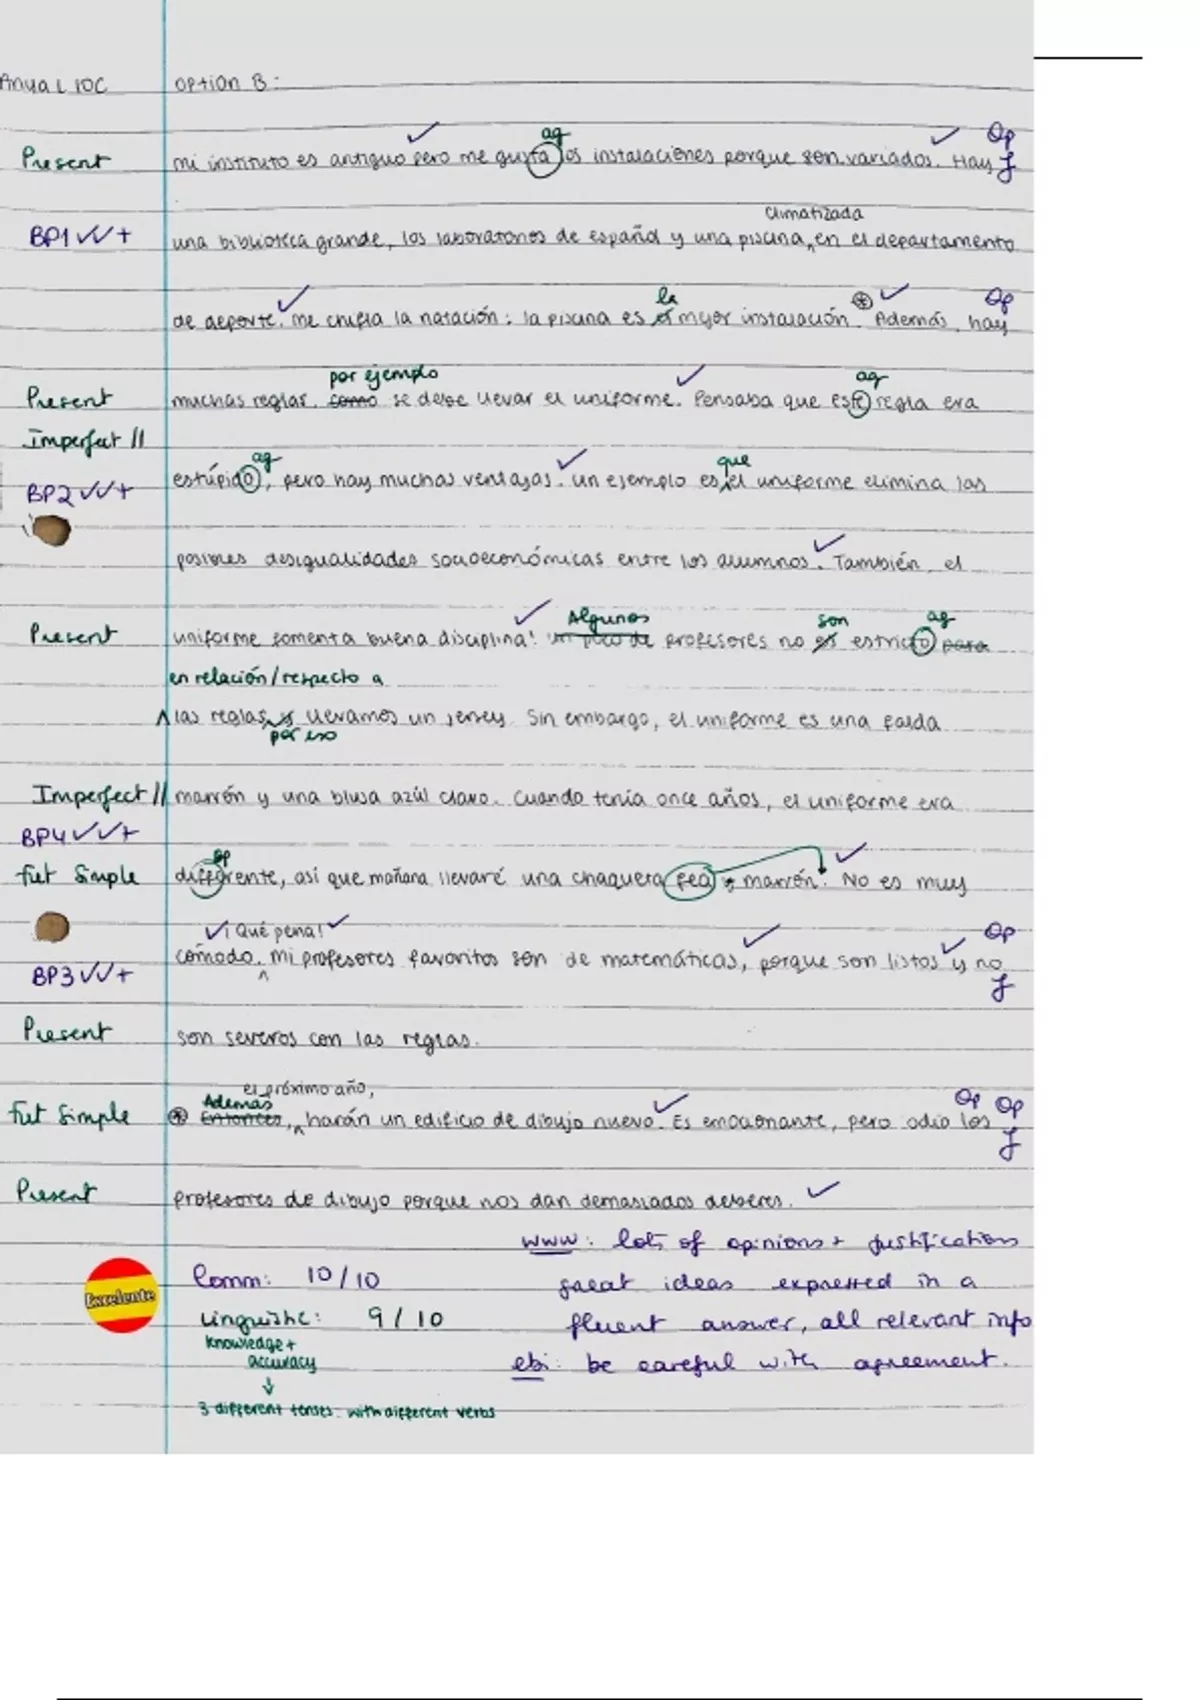 Anya L 10C
option B:
ag
Op
Present
mi instituto es antiguo pero me gusta los instalaciones porque son variados. Hay J
climatizada
BP1 ✓✓+
una biblioteca grande, los laboratorios de español y una piscina ^ en el departamento
la
Op
de deporte. me chifla la natación: la piscina es el mejor instalación. Además, hay
por ejemplo
ag
Present
muchas reglas. como se debe llevar el uniforme. Pensaba que este regla era
Imperfect //
ag
que
BP2 ✓✓+
estúpido, pero hay muchas ventajas. un ejemplo es el uniforme elimina las
posibles desigualidades socioeconómicas entre los alumnos. También, el
Algunos
son
ag
Present
uniforme fomenta buena disciplina! un poco de profesores no es estricto para
en relación/respecto a
^ las reglas, llevamos un jersey. Sin embargo, el uniforme es una falda
por eso
Imperfect //
marrón y una blusa azúl claro. Cuando tenía once años, el uniforme era
BP4 ✓✓+
sp
Fut Simple
differente, así que mañana llevaré una chaqueta fea y marrón. No es muy
¡Qué pena!
Op
cómodo. ^ mi profesores favoritos son de matemáticas, porque son listos y no
BP3 ✓✓+
J
Present
son severos con las reglas.
el próximo año,
Además
Op Op
Fut Simple
⊛ Entonces, ^ harán un edificio de dibujo nuevo. Es emocionante, pero odio los
J
Present
profesores de dibujo porque nos dan demasiados deberes.
www: lots of opinions + justifications
Excelente
Comm: 10/10
great ideas expressed in a
Linguistic: 9/10
fluent answer, all relevant info
knowledge +
accuracy
ebi: be careful with agreement.
↓
3 different tenses. with different verbs